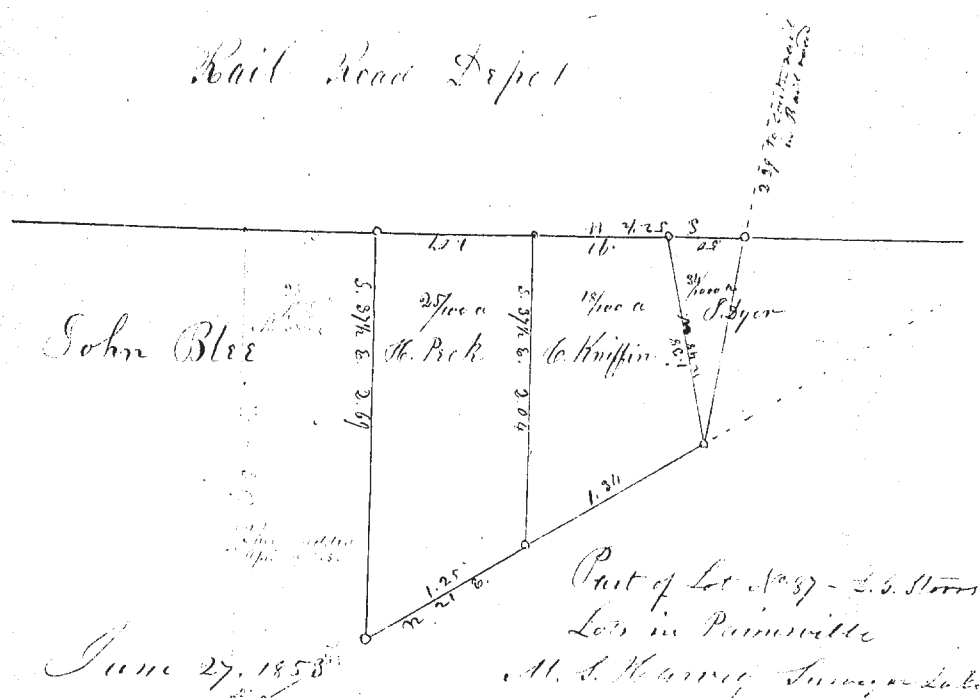 Rail Road Depot
2.69 to centre rail
in Rail road
1.07
.91
N 52½
S
.50
John Blee
S. 37½ E. 2.69
25/100 a
H. Peck
S. 37½ E. 2.04
18/100 a
C. Kniffin
N 48 W
1.38
/1000 a
S. Dyer
1.34
1.25
N. 21 E.
Part of Lot No 37 - L. G. Storrs
Lots in Painesville
June 27, 1853
M. S. Harvey Surveyor Lake